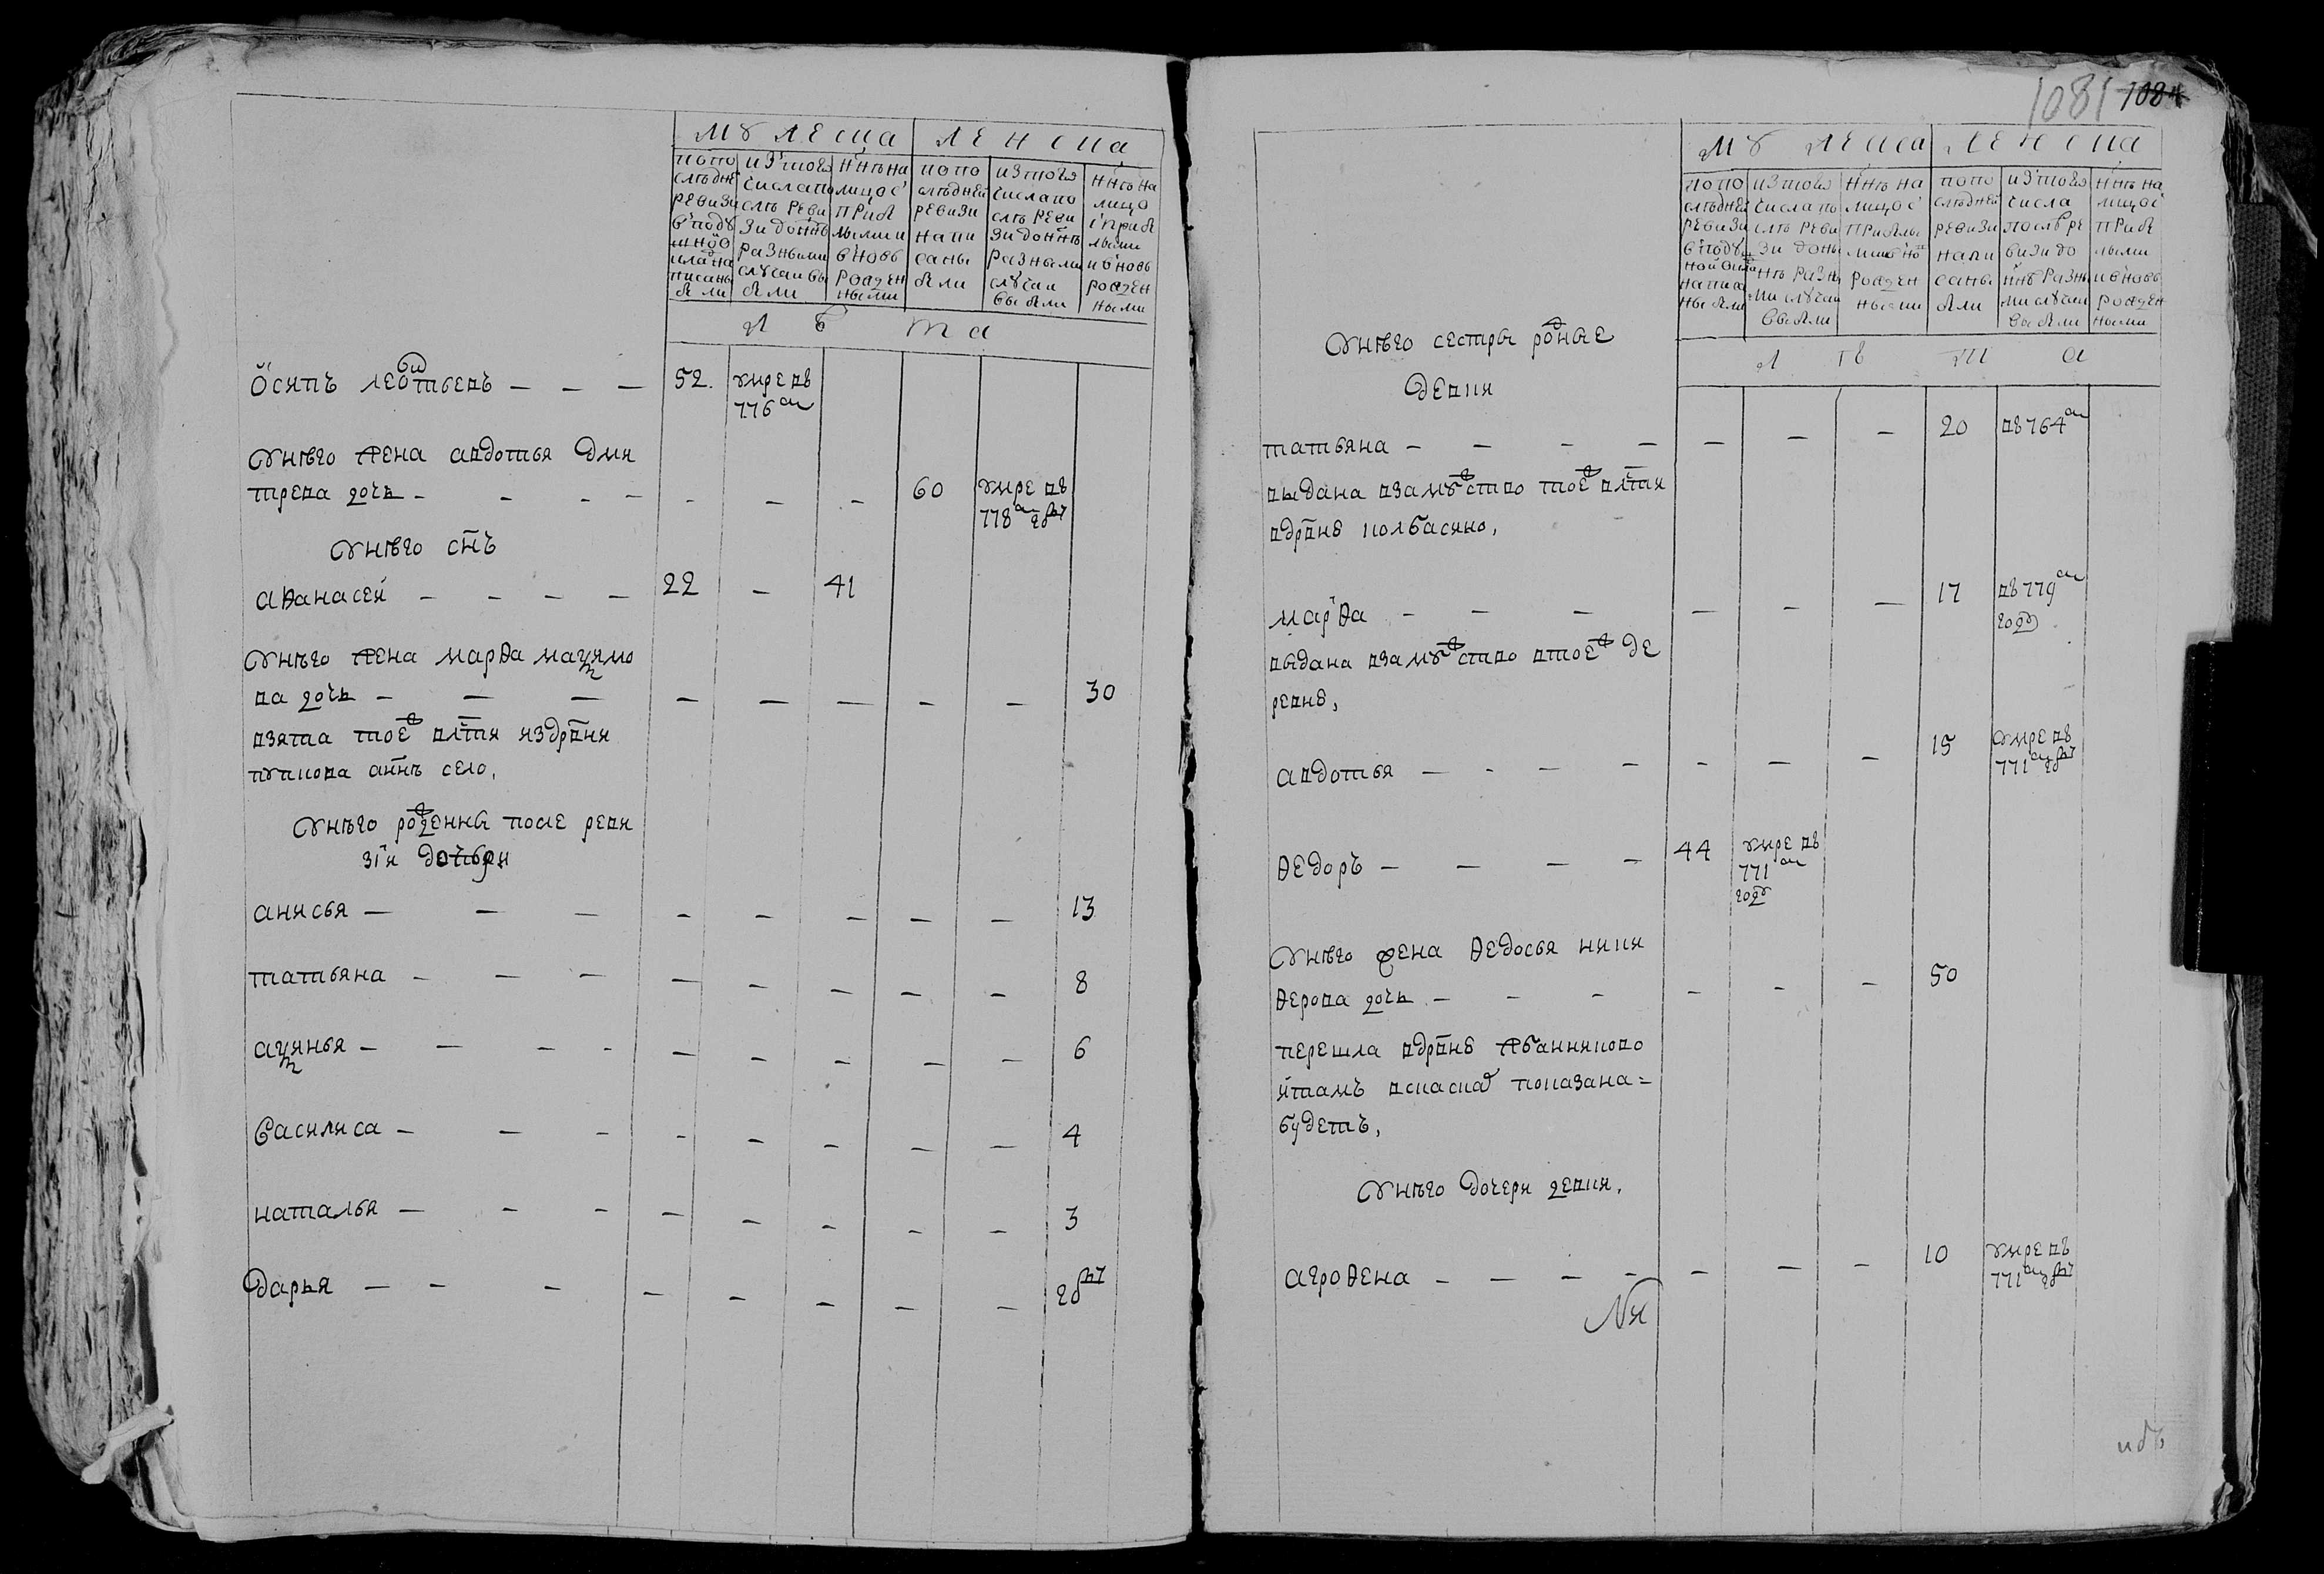 мужеска женска
по последней ревизи в подушной оклад написаны были
из того числа по сле реви зи до ннѣ разными случаи вы были
ннѣ на лицо с прибылыми и вновь рожденными
по последней ревизи написаны были
из того числа по слѣ реви зи до ннѣ разными случаи выбыли
ннѣ на лицо с прибылыми и вновь рожденными
лѣта
осипъ леонтьевъ — — — 52. умре въ
776м
унѣго жена авдотья дми
трева дочь — — — — — — — 60 умре въ
778м году
унѣго снъ
аѳанасей — — — — 22 — 41
унѣго жена марѳа
ва дочь — — — — — — — — 30
взята тоеж вотчи издрвни
село,
унѣго рожденны после реви
зiи дочери
анисья — — — — — — — — 13
татьяна — — — — — — — — 8
— — — — — — — — — 6
василиса — — — — — — — — 4
наталья — — — — — — — — 3
дарья — — — — — — — — году
1081 1084
мужеска женска
по последней ревизи в подушной оклад написаны были
из того числа по слѣ реви зи до ннѣ разны ми случаи выбыли
ннѣ на лицо с прибылы ми вно рожден ными
по последней ревизи написаны были
из того числа послѣ ре визи до ннѣ разны ми случаи выбыли
ннѣ на лицо с прибылыми и вновь рожденными
лѣта
унѣго сестры родные
девки
татьяна — — — — — — — 20 въ 764м
выдана взамужство тоеж вотчи
вдрвню
марѳа — — — — — — 17 въ 779м
году
выдана взамужство втоеж де
ревню,
авдотья — — — — — — — 15 умре въ
771м году
ѳедоръ — — — — 44 умре въ
771м
году
унѣго жена ѳедосья ники
ѳерова дочь — — — — — — 50
перешла вдрвню
итамъ всказке показана=
будетъ,
унѣго дочери девки,
агроѳена — — — — — — — 10 умре въ
771м году